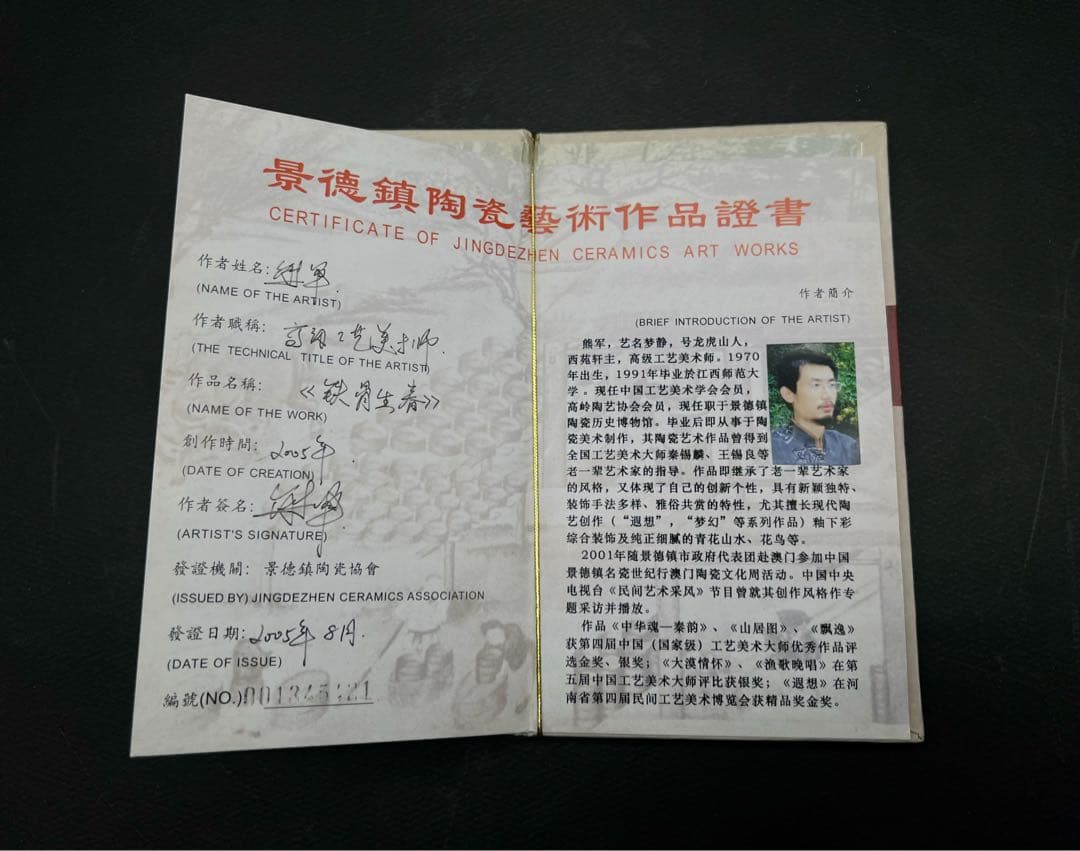 景德鎮陶瓷藝術作品證書
CERTIFICATE OF JINGDEZHEN CERAMICS ART WORKS
作者姓名: 熊军
(NAME OF THE ARTIST)
作者職稱: 高级工艺美术师.
(THE TECHNICAL TITLE OF THE ARTIST)
作品名稱: 《铁骨生春》
(NAME OF THE WORK)
創作時間: 2005年.
(DATE OF CREATION)
作者簽名:
(ARTIST'S SIGNATURE)
發證機關: 景德鎮陶瓷協會
(ISSUED BY) JINGDEZHEN CERAMICS ASSOCIATION
發證日期: 2005年8月.
(DATE OF ISSUE)
編號(NO.)
作者簡介
(BRIEF INTRODUCTION OF THE ARTIST)
熊军，艺名梦静，号龙虎山人，
西苑轩主，高级工艺美术师。1970
年出生，1991年毕业於江西师范大
学。现任中国工艺美术学会会员，
高岭陶艺协会会员，现任职于景德镇
陶瓷历史博物馆。毕业后即从事于陶
瓷美术制作，其陶瓷艺术作品曾得到
全国工艺美术大师秦锡麟、王锡良等
老一辈艺术家的指导。作品即继承了老一辈艺术家
的风格，又体现了自己的创新个性，具有新颖独特、
装饰手法多样、雅俗共赏的特性，尤其擅长现代陶
艺创作（“遐想”，“梦幻”等系列作品）釉下彩
综合装饰及纯正细腻的青花山水、花鸟等。
2001年随景德镇市政府代表团赴澳门参加中国
景德镇名瓷世纪行澳门陶瓷文化周活动。中国中央
电视台《民间艺术采风》节目曾就其创作风格作专
题采访并播放。
作品《中华魂—秦韵》、《山居图》、《飘逸》
获第四届中国（国家级）工艺美术大师优秀作品评
选金奖、银奖；《大漠情怀》、《渔歌晚唱》在第
五届中国工艺美术大师评比获银奖；《遐想》在河
南省第四届民间工艺美术博览会获精品奖金奖。